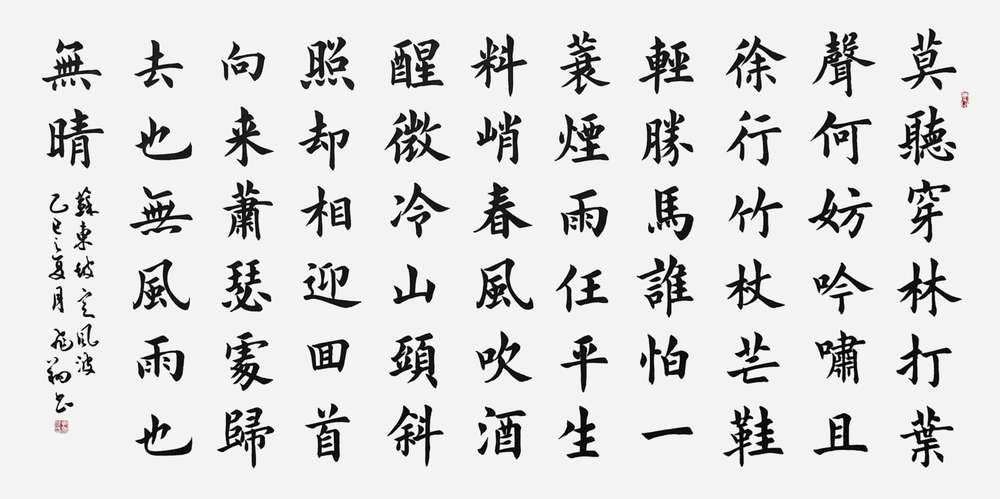 莫聽穿林打葉
聲何妨吟嘯且
徐行竹杖芒鞋
輕勝馬誰怕一
蓑煙雨任平生
料峭春風吹酒
醒微冷山頭斜
照却相迎回首
向来蕭瑟處歸
去也無風雨也
無晴
蘇東坡定風波
乙巳之夏月飛翔書